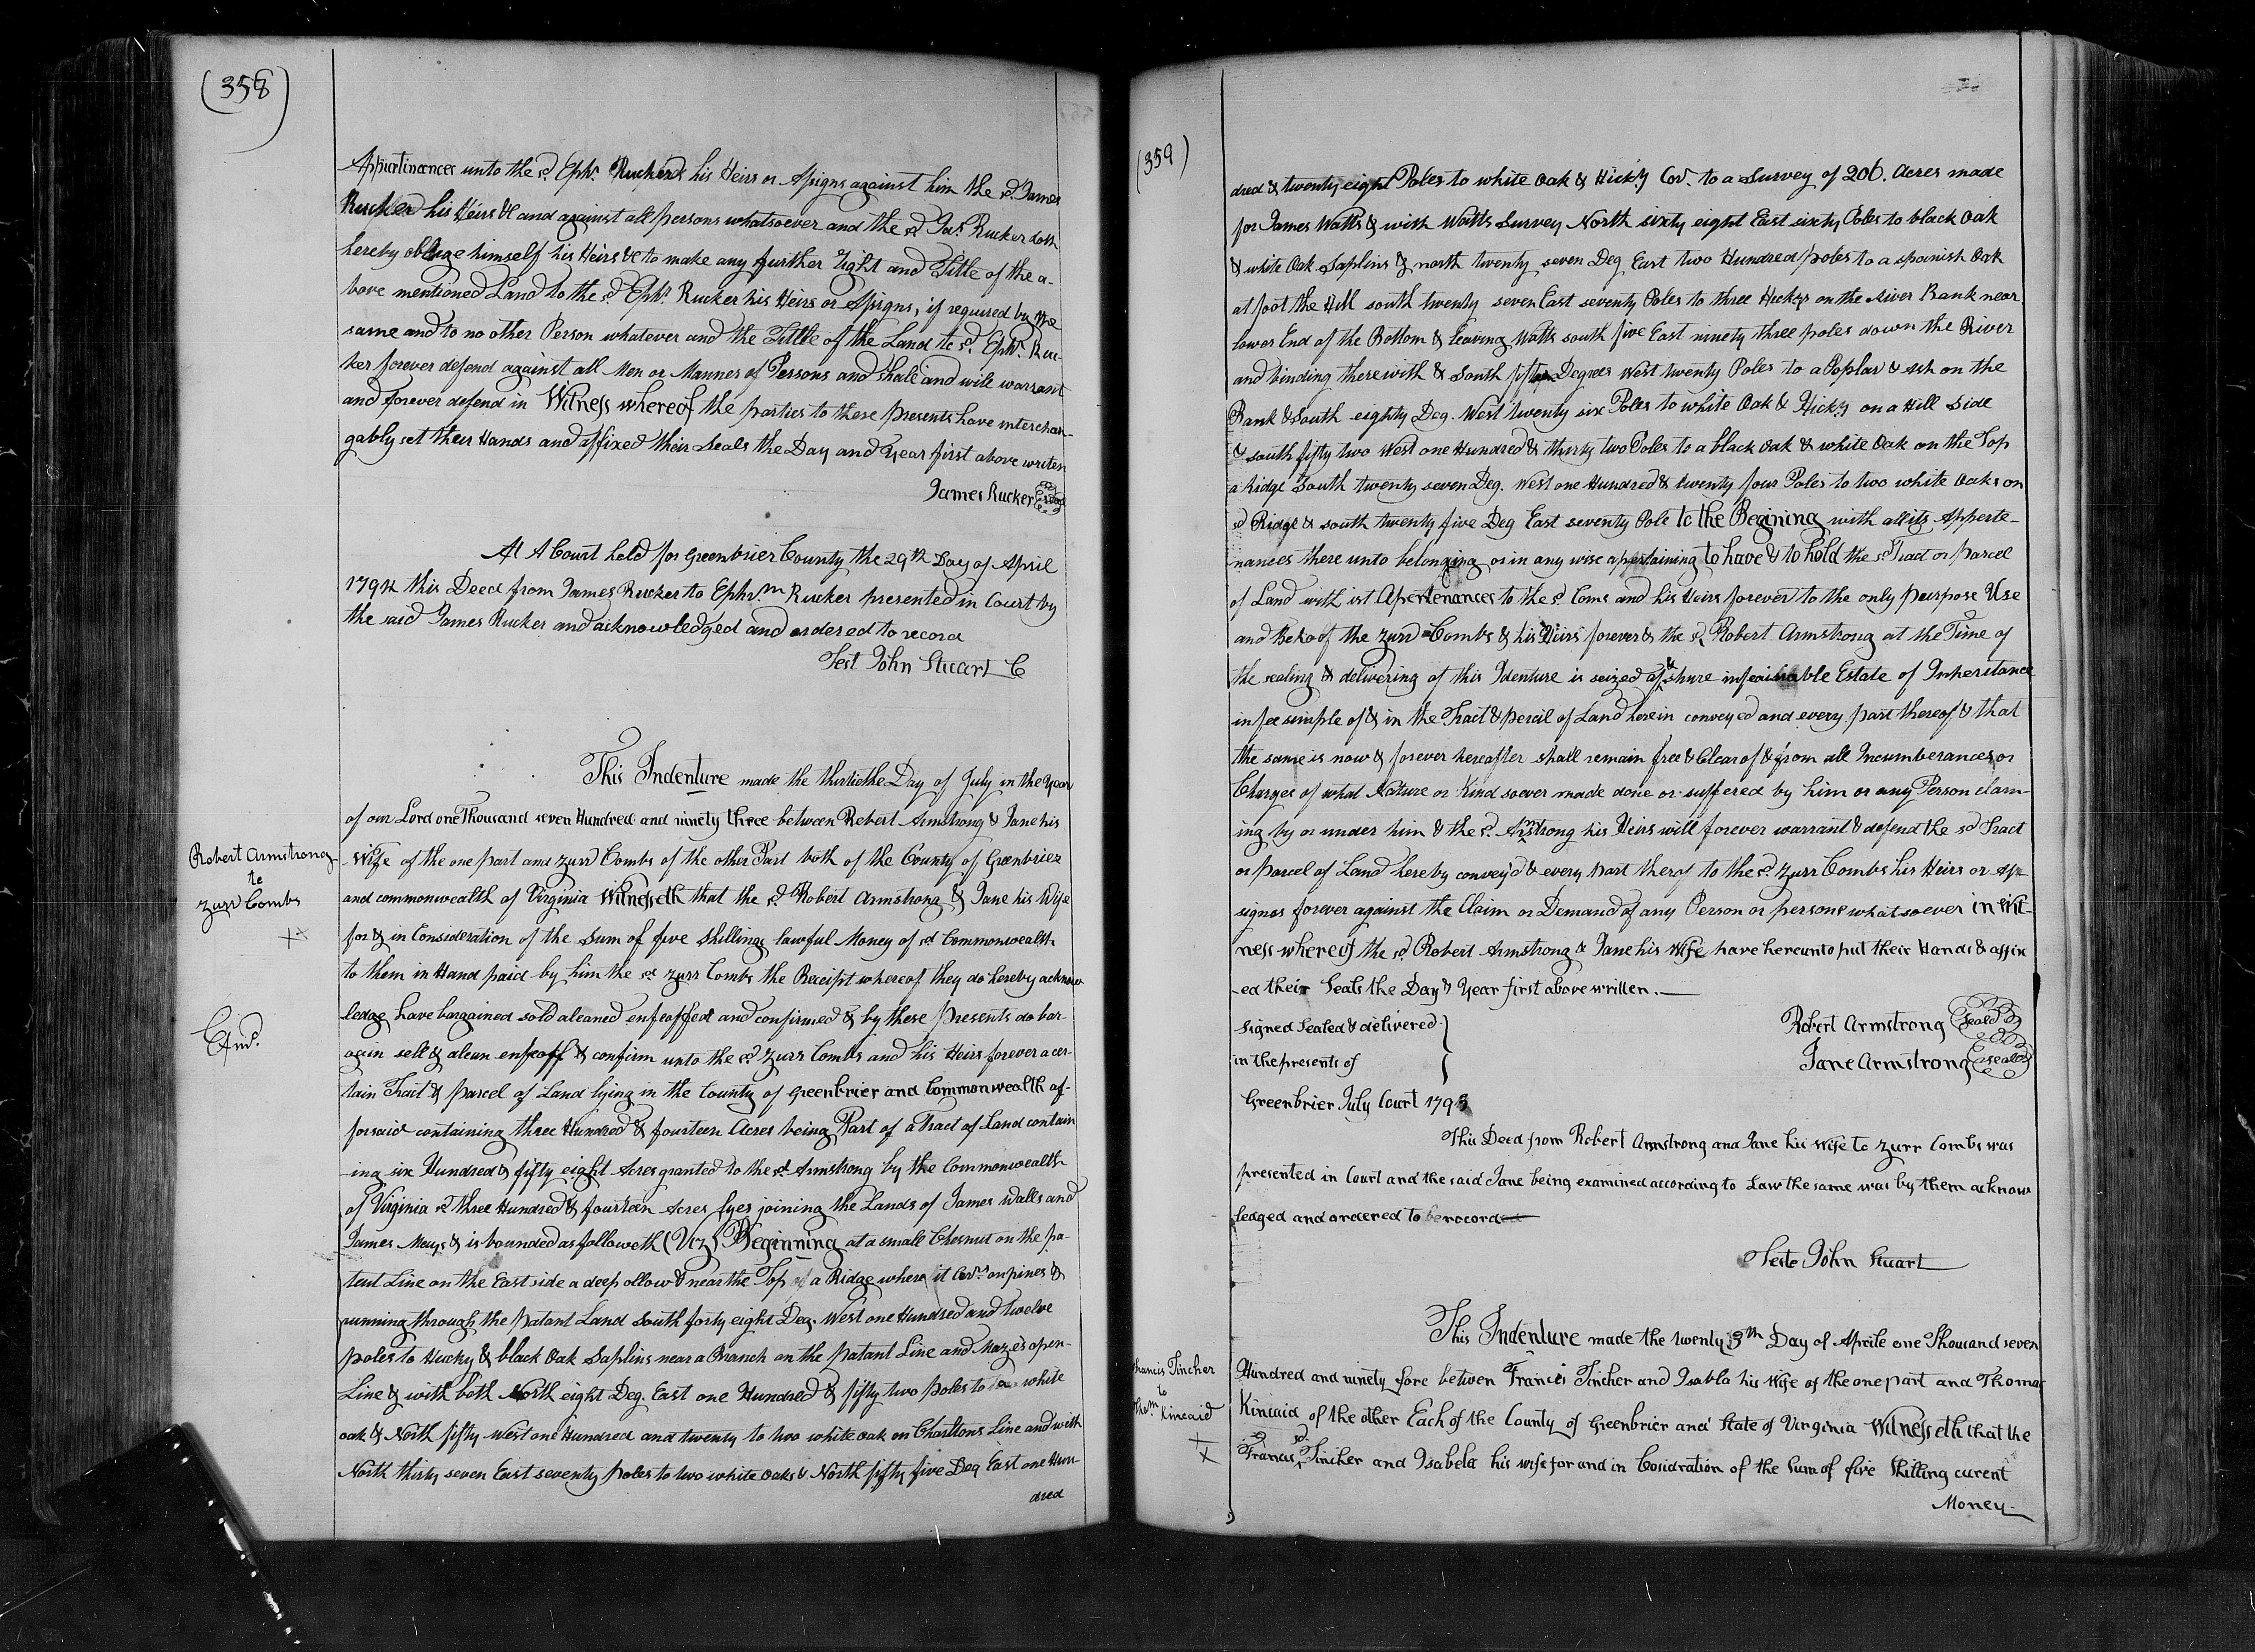 (358)
Appurtinances unto the sd. Ephr. Rucker & his Heirs or Assigns against him the sd. James
Rucker his Heirs &c and against all persons whatsoever and the sd Jas. Rucker doth
hereby oblige himself his Heirs &c to make any further Right and Title of the a-
bove mentioned Land to the sd Ephr. Rucker his Heirs or Assigns, if required by the
same and to no other Person whatever and the Title of the Land to sd. Ephr. Ruc-
ker forever defend against all Men or Manner of Persons and shall and will warrant
and forever defend in Witness whereof the parties to these presents have interchan-
gably set their Hands and affixed their Seals the Day and Year first above writen
James Rucker Seal
At A Court held for Greenbrier County the 29th Day of April
1794 this Deed from James Rucker to Ephrm Rucker presented in Court by
the said James Rucker and acknowledged and ordered to record
Test John Stuart C
This Indenture made the thirtiethe Day of July in the Year
of our Lord one Thousand seven Hundred and ninety three between Robert Armstrong & Jane his
Robert Armstrong
to
Zurr Combs
++
End.
Wife of the one part and Zurr Combs of the other Part both of the County of Greenbrier
and commonwealth of Virginia Witnesseth that the sd. Robert Armstrong & Jane his Wife
for & in Consideration of the Sum of five Shillings lawful Money of sd Commonwealth
to them in Hand paid by him the sd Zurr Combs the Receipt whereof they do hereby acknow
ledge have bargained sold aleaned enfeoffed and confirmed & by these presents do bar-
agin sell & alean enfeoff & confirm unto the sd Zurr Combs and his Heirs forever a cer-
tain Tract & parcel of Land lying in the County of Greenbrier and Commonwealth of-
forsaid containing three Hundred & fourteen Acres being Part of a Tract of Land contain
-ing six Hundred & fifty eight Acres granted to the sd Armstrong by the Commonwealth
of Virginia sd three Hundred & fourteen Acres lyes joining the Lands of James Watts and
James Mays & is bounded as followeth (Viz) Beginning at a small Chesnut on the pa-
tent Line on the East side a deep ollow & near the Top of a Ridge where it Cors. on pines &
running through the patant Land South forty eight Deg. West one Hundred and twelve
poles to Hucky & black Oak Saplins near a Branch on the patant Line and Mazes open-
Line & with both North eight Deg. East one Hundred & fifty two poles to a white
oak & North fifty West one Hundred and twenty to two white oak on Charltons Line and with
North thirty seven East seventy poles to two white oaks & North fifty five Deg East one Hun-
dred
(359)
dred & twenty eight Poles to white Oak & Hick:y Cor. to a Survey of 206. Acres made
for James Watts & with Watts Survey North sixty eight East sixty Poles to black Oak
& white Oak Saplins & north twenty seven Deg East two Hundred poles to a spanish Oak
at foot the Hill south twenty seven East seventy Poles to three Hickys on the River Bank near
lower End of the Bottom & leaving Watts south five East ninety three poles down the River
and binding therewith & South Degrees West twenty Poles to a Poplar & ash on the
Bank & South eighty Deg. West twenty six Poles to white Oak & Hick:y on a Hill Side
& south fifty two West one Hundred & thirty two Poles to a black Oak & white Oak on the Top
a Ridge South twenty seven Deg. West one Hundred & twenty four Poles to two white Oaks on
sd Ridge & south twenty five Deg East seventy Pole to the Begining with all its Apperte-
nances there unto belonging or in any wise apertaining to have & to hold the sd Tract or parcel
of Land with ist Apertenances to the sd. Coms and his Heirs forever to the only purpose Use
and Behoof the Zurr Combs & his Heirs forever & the sd. Robert Armstrong at the Time of
the sealing & delivering of this Identure is seized of & shure infeaisiable Estate of Inheritance
in fee simple of & in the Tract & percil of Land herein conveyed and every part thereof & that
the same is now & forever hereafter shall remain free & Clear of & from all Incumberances or
Charges of what Nature or Kind soever made done or suffered by him or any Person claim-
ing by or under him & the sd. Armstrong his Heirs will forever warrant & defend the sd Tract
or parcel of Land hereby convey'd & every part therof to the sd. Zurr Combs his Heirs or As-
signs forever against the Claim or Demand of any Person or persons whatsoever in Wit-
ness whereof the sd. Robert Armstrong & Jane his Wife have hereunto put their Hands & affix
-ed their Seals the Day & Year first above written. —
Signed Sealed & delivered }
in the presents of }
Robert Armstrong Seal
Jane Armstrong Seal
Greenbrier July Court 1793
This Deed from Robert Armstrong and Jane his Wife to Zurr Combs was
presented in Court and the said Jane being examined according to Law the same was by them acknow
ledged and ordered to be recorded
Teste John Stuart
This Indenture made the twenty 5th Day of Aprile one Thousand seven
Francis Tincher
to
Thom Kincaid
++
Hundred and ninety fore betwen Francis Tincher and Isabla his Wife of the one part and Thomas
Kincaid of the other Each of the County of Greenbrier and State of Virginia Witnesseth that the
sd Francis Tincher and Isabela his wife for and in Cosidration of the Sum of five Shilling curent
Money-